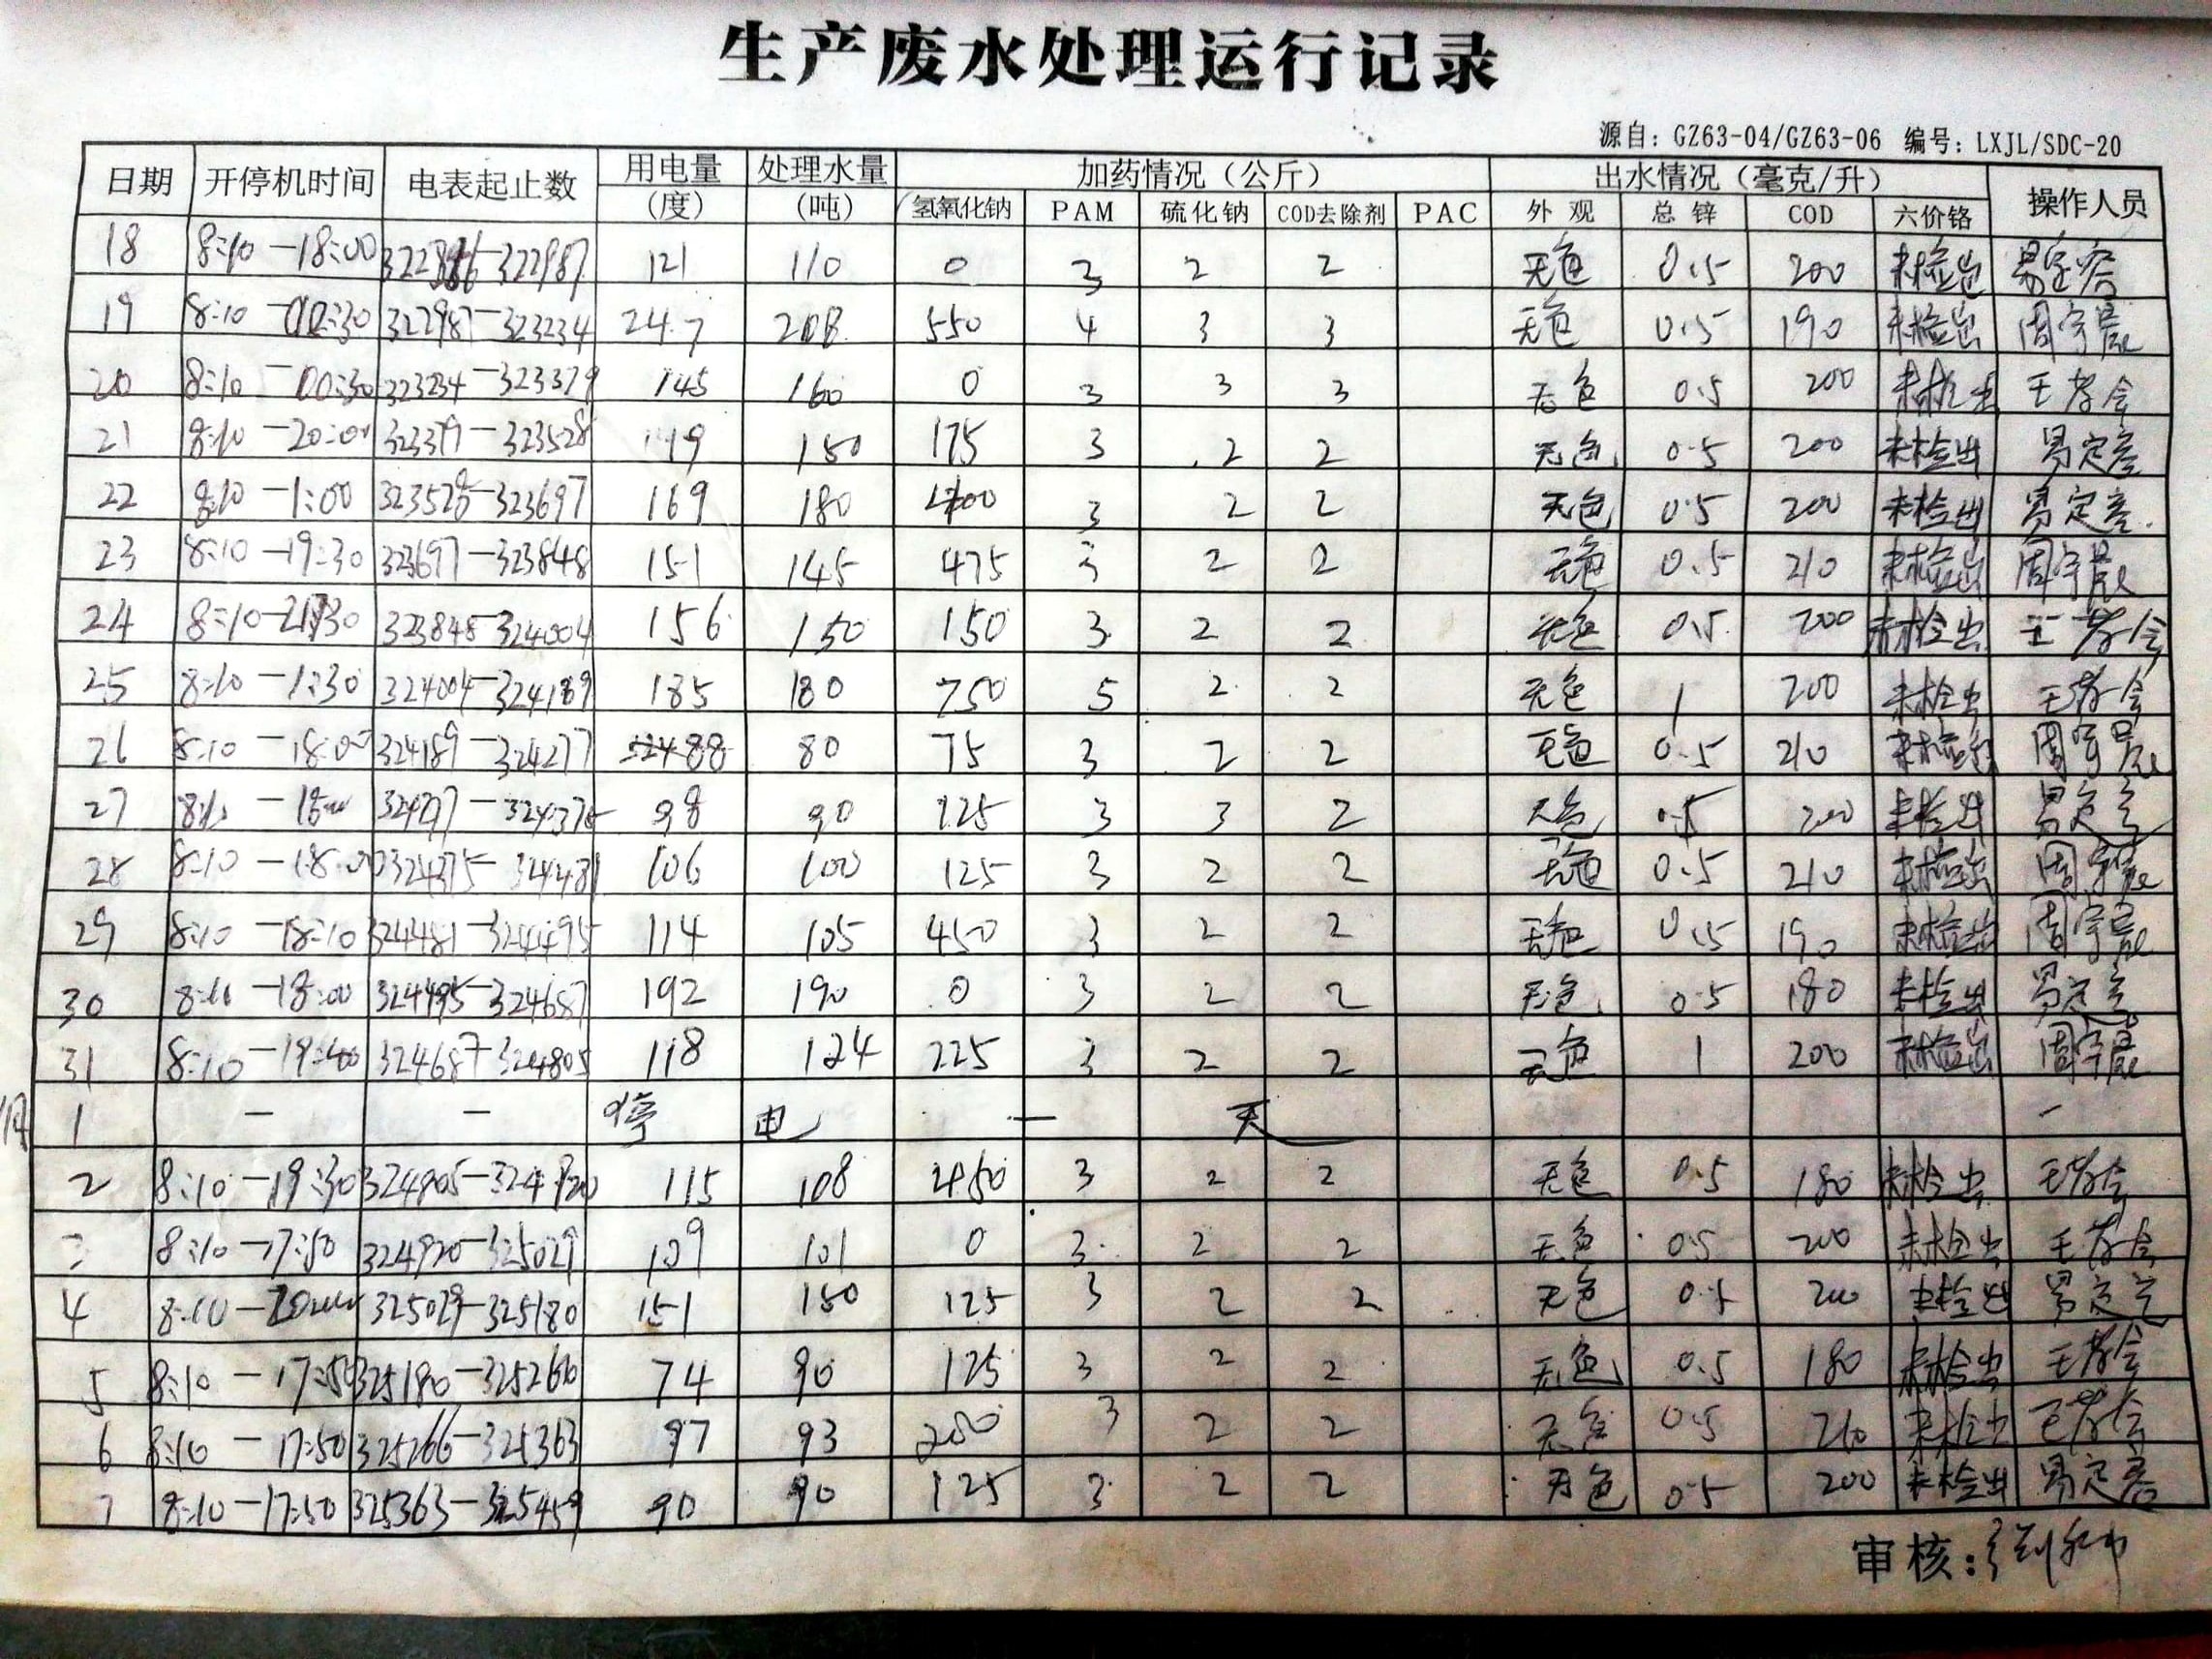 生产废水处理运行记录
源自：GZ63-04/GZ63-06 编号：LXJL/SDC-20
日期 开停机时间 电表起止数 用电量(度) 处理水量(吨) 加药情况（公斤） 出水情况（毫克/升） 操作人员
氢氧化钠 PAM 硫化钠 COD去除剂 PAC 外观 总锌 COD 六价铬
18 8:10-18:00 -322987 121 110 0 3 2 2 无色 0.5 200 未检出
19 8:10- 322987-323234 247 208 550 4 3 3 无色 0.5 190 未检出 周宇晨
20 8:10-00:30 323234-323379 145 160 0 3 3 3 无色 0.5 200 未检出 王孝会
21 8:10-20:00 323379-323528 149 150 175 3 2 2 无色 0.5 200 未检出 易定容
22 8:10-1:00 323528-323697 169 180 3 2 2 无色 0.5 200 未检出 易定容
23 8:10-19:30 323697-323848 151 145 475 3 2 2 无色 0.5 210 未检出 周宇晨
24 8:10-21:30 323848-324004 156 150 150 3 2 2 无色 0.5 200 未检出 王孝会
25 8:10-1:30 324004-324189 185 180 750 5 2 2 无色 1 200 未检出 王孝会
26 8:10-18:00 324189-324277 88 80 75 3 2 2 无色 0.5 210 未检出 周宇晨
27 8:10-18:00 324277-324375 98 90 125 3 3 2 无色 0.5 200 未检出 易定容
28 8:10-18:00 324375-324481 106 100 125 3 2 2 无色 0.5 210 未检出 周宇晨
29 8:10-18:10 324481-324495 114 105 450 3 2 2 无色 0.5 190 未检出 周宇晨
30 8:10-18:00 324495-324687 192 190 0 3 2 2 无色 0.5 180 未检出 易定容
31 8:10-19:00 324687-324805 118 124 225 3 2 2 无色 1 200 未检出 周宇晨
1 - - 停 电 一 天 -
2 8:10-19:30 324805-324920 115 108 450 3 2 2 无色 0.5 180 未检出 王孝会
3 8:10-17:50 324920-325029 109 101 0 3 2 2 无色 0.5 200 未检出 王孝会
4 8:10-20:00 325029-325180 151 150 125 3 2 2 无色 0.5 200 未检出 易定容
5 8:10-17:50 325180-325266 74 90 125 3 2 2 无色 0.5 180 未检出 王孝会
6 8:10-17:50 325266-325363 97 93 250 3 2 2 无色 0.5 210 未检出 王孝会
7 8:10-17:50 325363-325459 90 90 125 3 2 2 无色 0.5 200 未检出 易定容
审核：